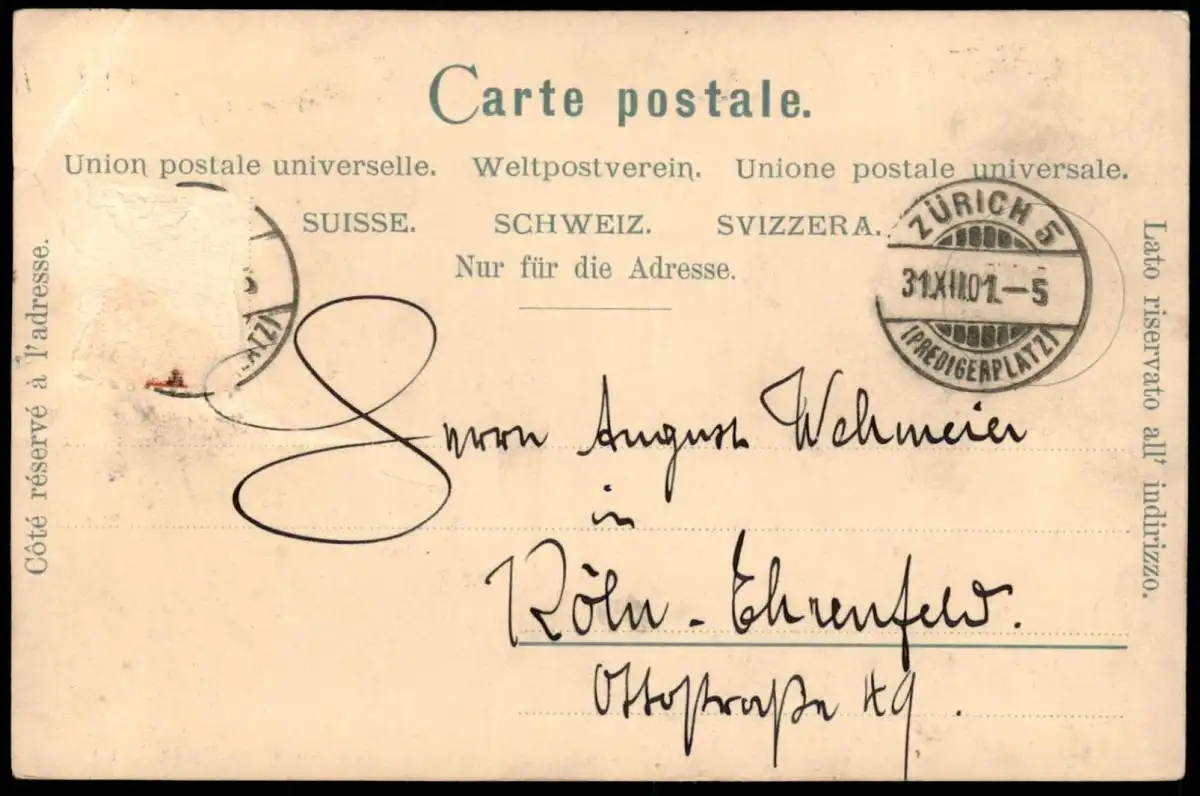 Carte postale.
Union postale universelle. Weltpostverein. Unione postale universale.
SUISSE. SCHWEIZ. SVIZZERA.
Nur für die Adresse.
Côté réservé à l'adresse.
Lato riservato all' indirizzo.
ZÜRICH 5
31.XII.01.–5
(PREDIGERPLATZ)
ATZ)
Herrn August Wehmeier
in
Köln - Ehrenfeld.
Ottostraße 49.